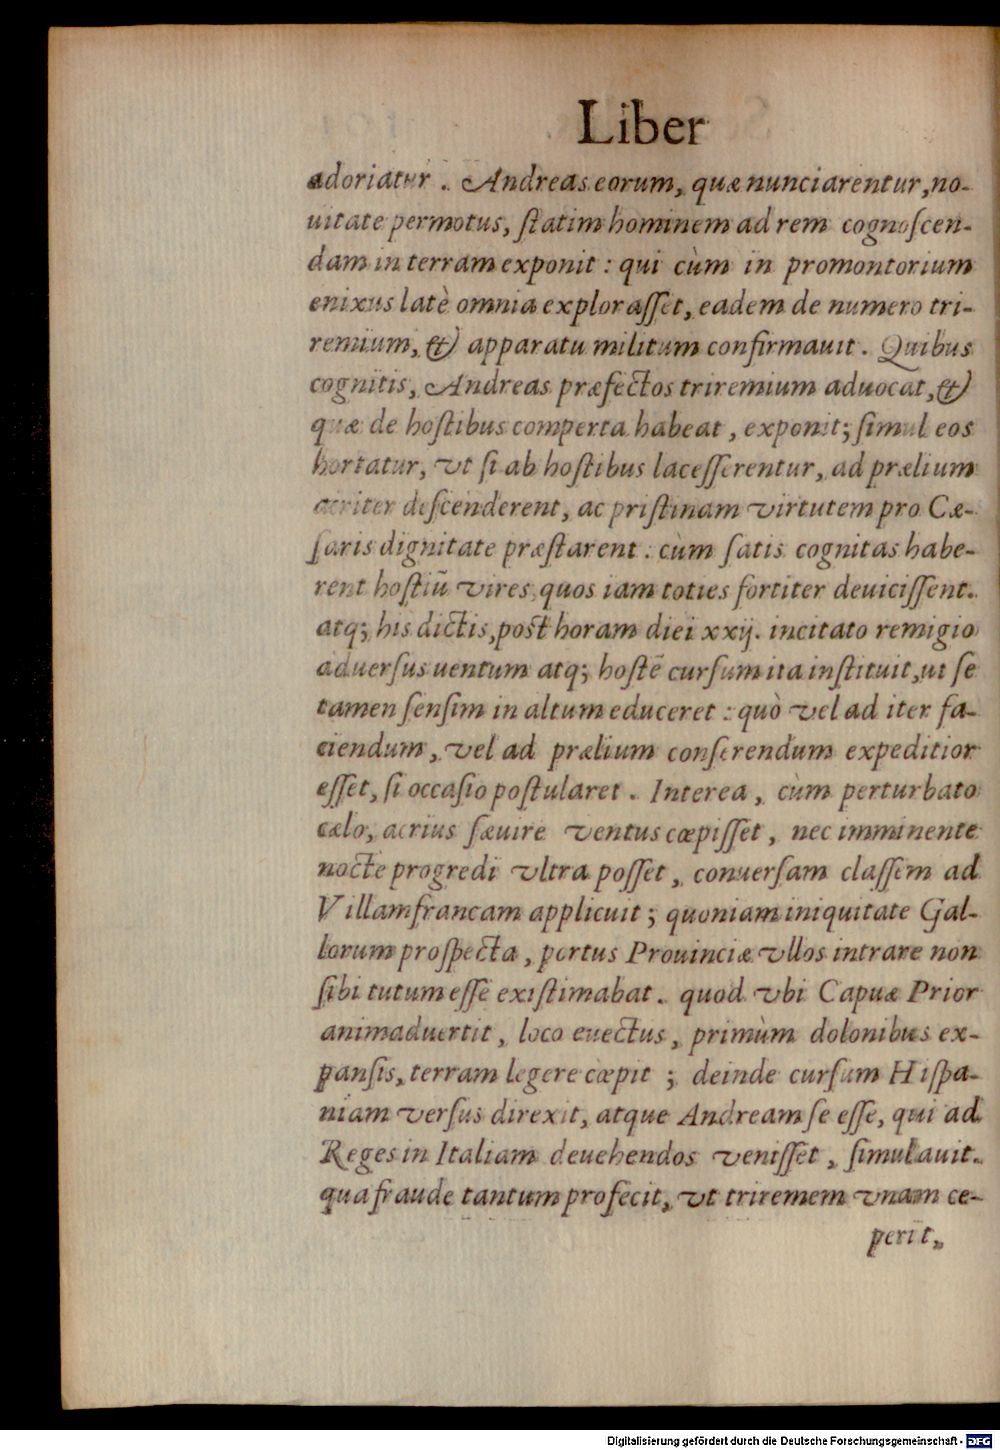 Liber
adoriatur. Andreas eorum, quæ nunciarentur, no-
uitate permotus, ſtatim hominem ad rem cognoſcen-
dam in terram exponit: qui cùm in promontorium
enixus latè omnia exploraſſet, eadem de numero tri-
remium, & apparatu militum confirmauit. Quibus
cognitis, Andreas præfectos triremium aduocat, &
quæ de hoſtibus comperta habeat, exponit; ſimul eos
hortatur, vt ſi ab hoſtibus laceſſerentur, ad prælium
acriter deſcenderent, ac priſtinam virtutem pro Cæ-
ſaris dignitate præſtarent: cùm ſatis cognitas habe-
rent hoſtiū vires, quos iam toties fortiter deuiciſſent.
atq; his dictis, poſt horam diei xxij. incitato remigio
aduerſus uentum atq; hoſtē curſum ita inſtituit, ut ſe
tamen ſenſim in altum educeret: quò vel ad iter fa-
ciendum, vel ad prælium conſerendum expeditior
eſſet, ſi occaſio poſtularet. Interea, cùm perturbato
cælo, acrius ſæuire ventus cœpiſſet, nec imminente
nocte progredi vltra poſſet, conuerſam claſſem ad
Villamfrancam applicuit; quoniam iniquitate Gal-
lorum proſpecta, portus Prouinciæ vllos intrare non
ſibi tutum eſſe exiſtimabat. quod vbi Capuæ Prior
animaduertit, loco euectus, primùm dolonibus ex-
panſis, terram legere cœpit; deinde curſum Hiſpa-
niam verſus direxit, atque Andream ſe eſſe, qui ad
Reges in Italiam deuehendos veniſſet, ſimulauit.
qua fraude tantum profecit, vt triremem vnam ce-
perit,
Digitalisierung gefördert durch die Deutsche Forschungsgemeinschaft - DFG